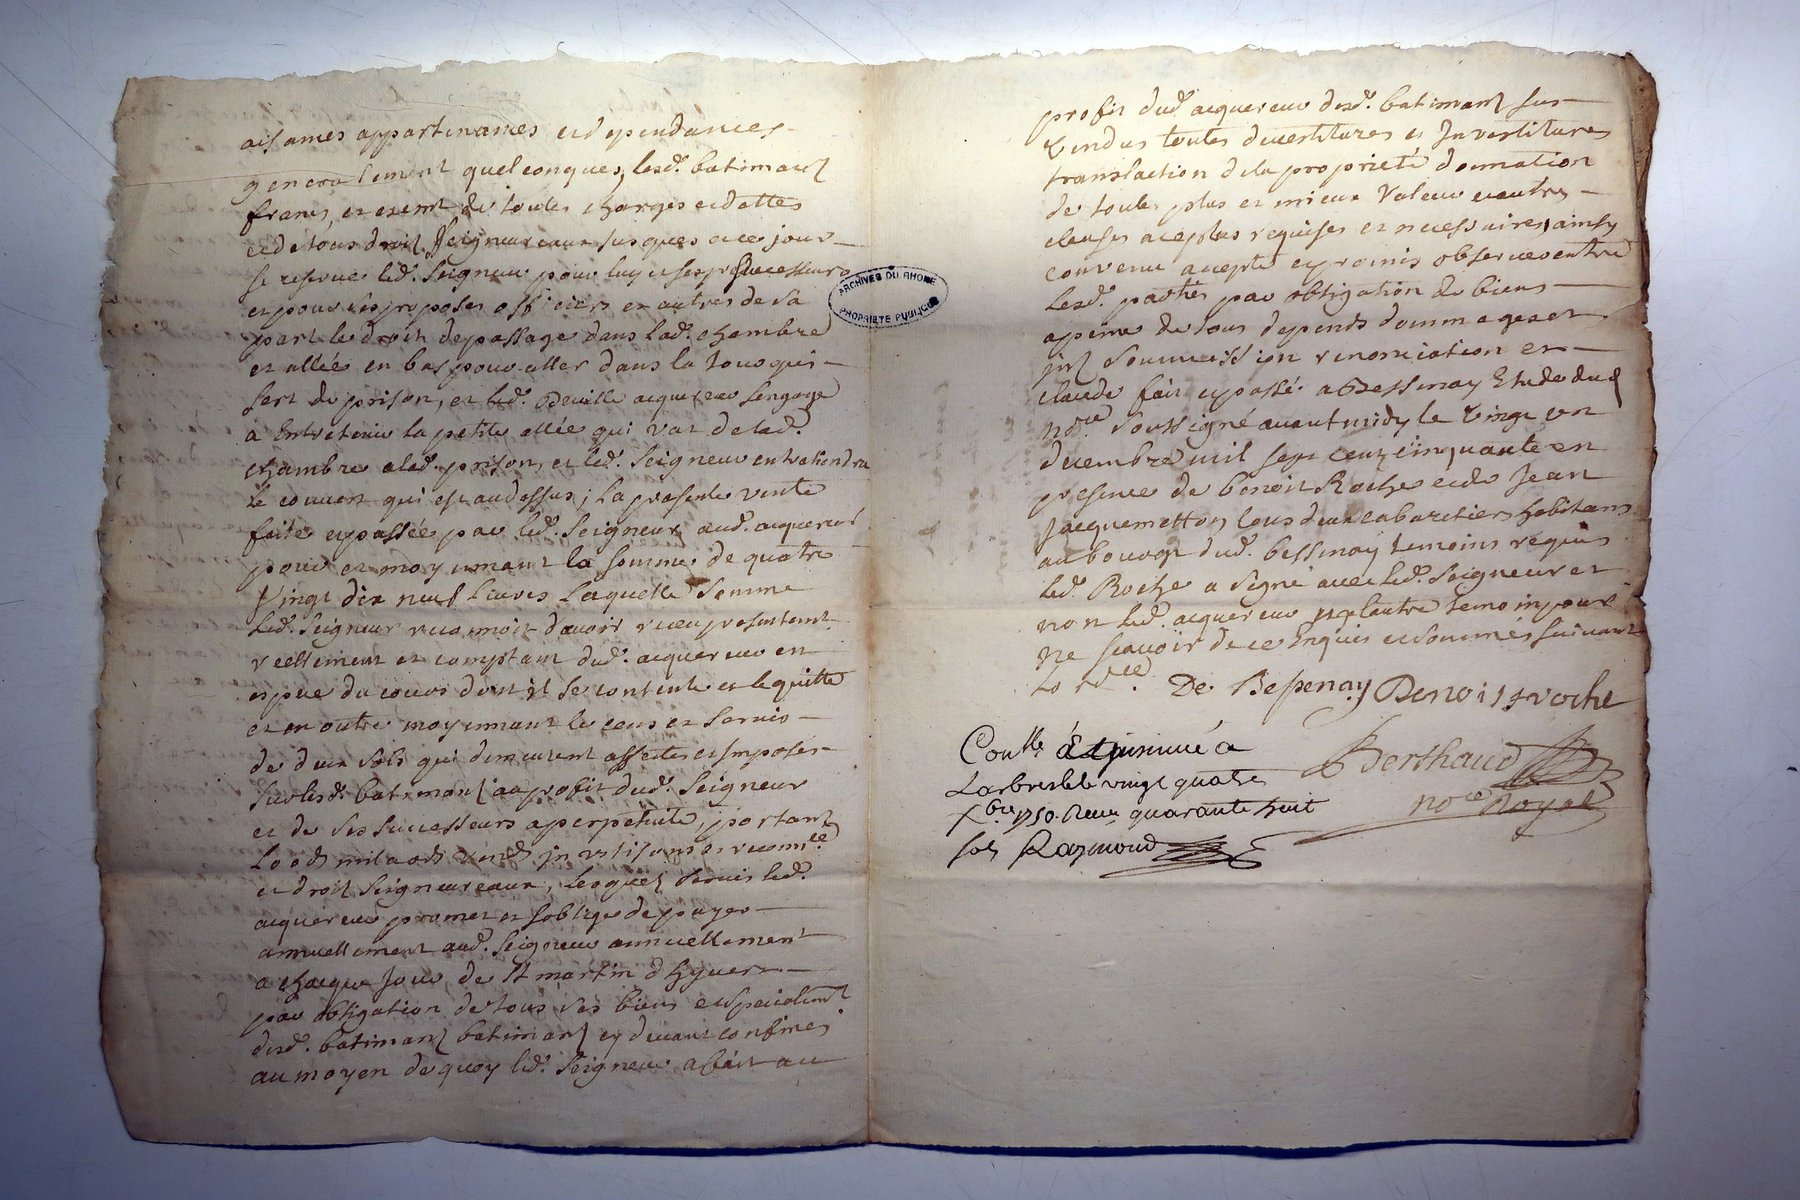 aisances appartenances et dependances
generalement quelconques, lesd. batimans
francs et exemt de toutes charges et dettes
et de tous droits seigneuriaux jusques a ce jour
se reserve led. Seigneur pour luy et ses successeurs
et pour ses proposés officiers et autres de sa
part le droit de passage dans lad. chambre
et allée en bas pour aller dans la tour qui
sert de prison, et led. acquereur s'engage
a Entretenir la petite allée qui vat de lad.
chambre a lad. prison, et led. Seigneur entretiendra
le couvert qui est au dessus; la presente vente
faite et passée par led. Seigneur aud. acquereur
pour et moyennant la somme de quatre
Vingt dix neuf livres laquelle somme
led. Seigneur reconnoit d'avoir receu presentemt.
reellement et comptant dud. acquereur en
espece du cours dont il se contente et le quitte
et en outre moyennant le cens et servis
de deux sols qui demeurent affectes et imposes
sur lesd. batimans au profit dud. Seigneur
et de ses successeurs a perpetuité, portant
Lods milaods
et droits seigneuriaux, lequel servis led.
acquereur promet et s'oblige de payer
annuellement aud. Seigneur annuellement
a chaque jour de St martin d'hyver
par obligation de tous ses biens et specialemt
desd. batimans batimans cy devant confinés.
au moyen de quoy led. Seigneur a fait au
ARCHIVES DU RHONE
PROPRIETE PUBLIQUE
profit dud. acquereur desd. batimans sus
Vendus toutes devestitures et Investitures
translaction de la proprieté donnation
de toutes plus et mieux Valeur et autres
clauses a ce plus requises et necessaires, ainsy
convenu accepté et promis observer entre
Lesd. parties par obligation de biens
a peine de tous depends dommages et
soumission renonciation et
clause fait et passé a Bessenay Etude dud
nore. soussigné avant midy le Vingt un
decembre mil sept cent cinquante en
presence de benoit Roche et de Jean
Jacquemetton tous deux cabaretiers habitans
au bourg dud. bessenay temoins requis
led. Roche a signé avec led. Seigneur et
non led. acquereur ny l'autre temoin pour
ne scavoir de ce Enquis et sommés suivant
Lordce.
De Bessenay Benoist roche
Berthaud
nore. Royal
Conllé & insinué a
Larbresle le vingt quatre
Xbre 1750. Receu quarante huit
sols Raymond